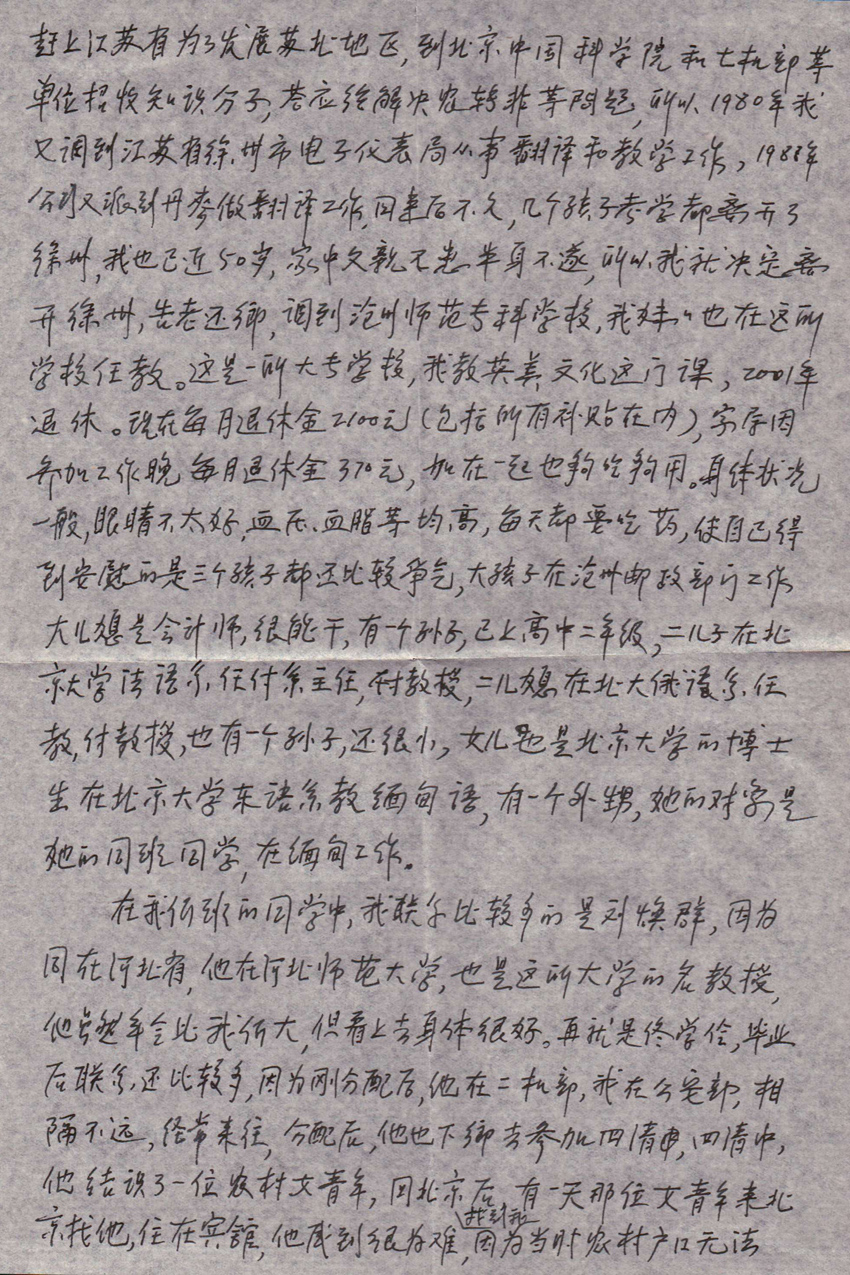 赶上江苏省为了发展苏北地区,到北京中国科学院和七机部等
单位招收知识分子,答应给解决农转非等问题,所以,1980年我
又调到江苏省徐州市电子仪表局从事翻译和教学工作,1988年
公司又派到丹麦做翻译工作,回来后不久,几个孩子考学都离开了
徐州,我也已近50岁,家中父亲又患半身不遂,所以我就决定离
开徐州,告老还乡,调到沧州师范专科学校,我妹〃也在这所
学校任教。这是一所大专学校,我教英美文化这门课,2001年
退休。现在每月退休金2100元(包括所有补贴在内),家属因
参加工作晚每月退休金370元,加在一起也够吃够用。身体状况
一般,眼睛不太好,血压、血脂等均高,每天都要吃药,使自己得
到安慰的是三个孩子都还比较争气,大孩子在沧州邮政部门工作
大儿媳是会计师,很能干,有一个孙子,已上高中二年级,二儿子在北
京大学法语系任付系主任,付教授,二儿媳在北大俄语系任
教,付教授,也有一个孙子,还很小,女儿也是北京大学的博士
生在北京大学东语系教缅甸语,有一个外甥,她的对象是
她的同班同学,在缅甸工作。
在我们班的同学中,我联系比较多的是刘焕群,因为
同在河北省,他在河北师范大学,也是这所大学的名教授,
他虽然年令比我们大,但看上去身体很好。再就是佟学俭,毕业
后联系还比较多,因为刚分配后,他在二机部,我在公安部,相
隔不远,经常来往,分配后,他也下乡去参加四清,四清中,
他结识了一位农村女青年,回北京后,有一天那位女青年来北
京找他,住在宾館,他感到很为难,因为当时农村户口无法